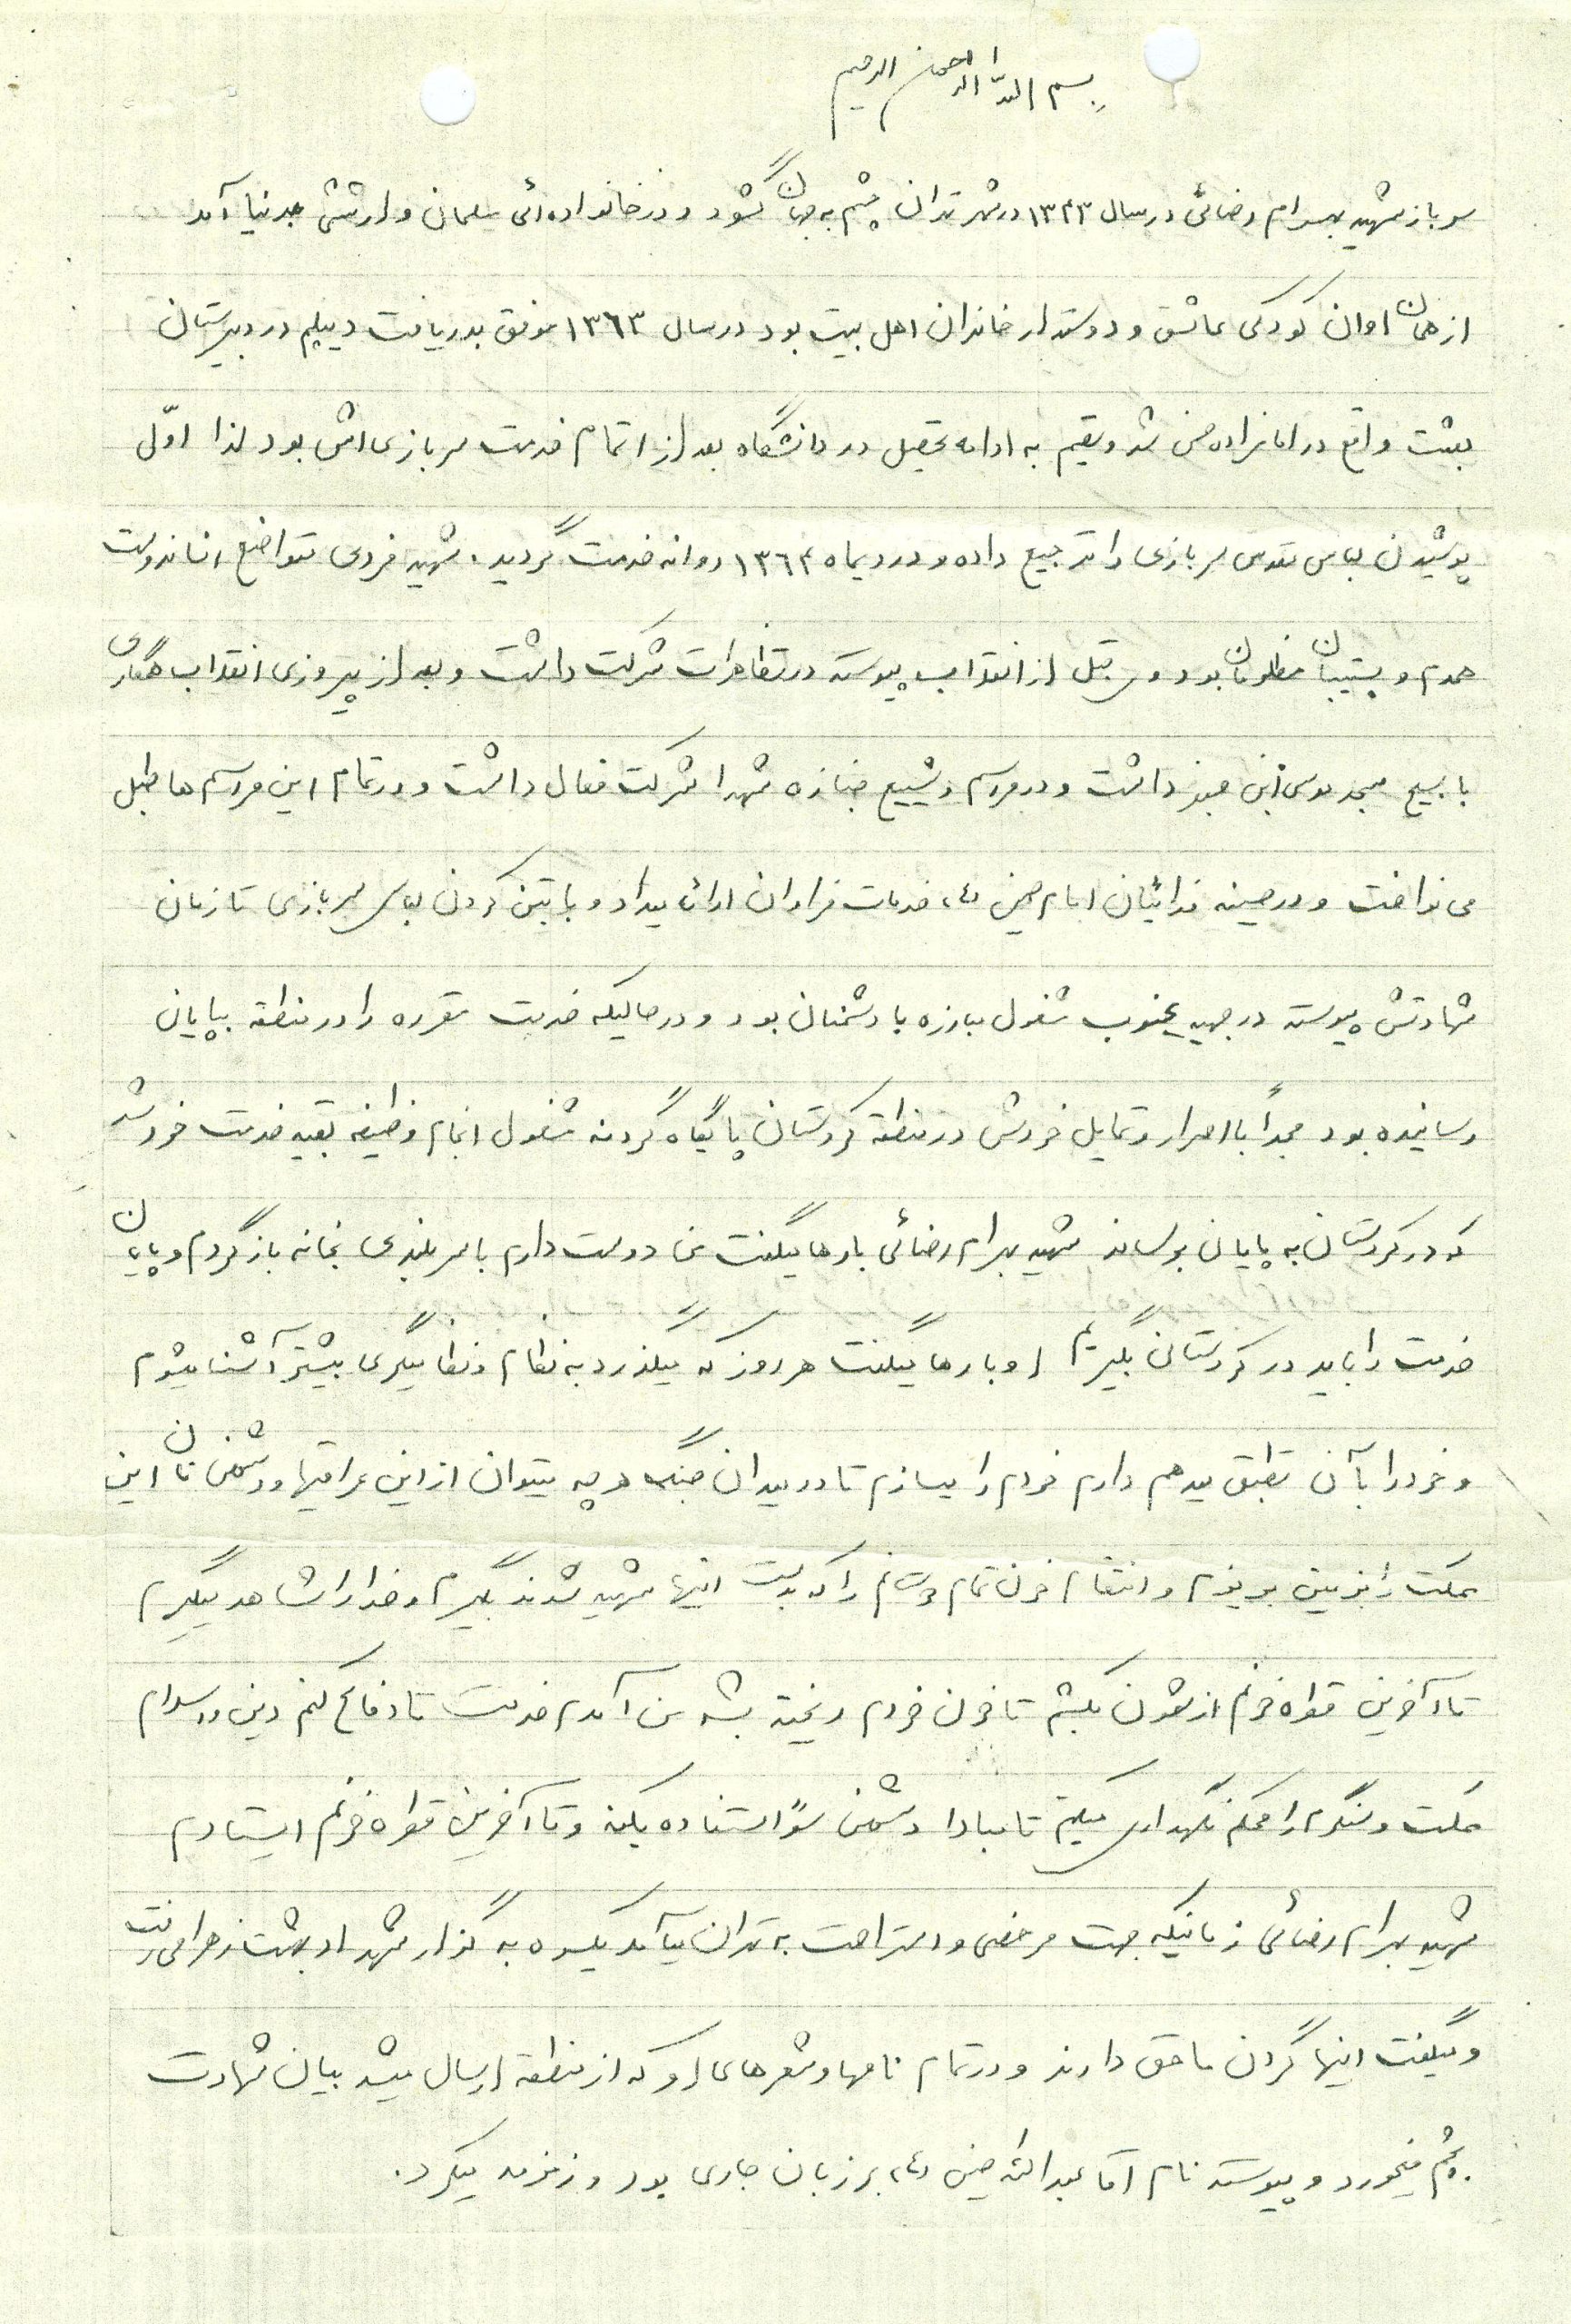 بسم الله الرحمن الرحیم
سرباز شهید بهرام رضائی در سال ۱۳۴۳ در شهر تهران چشم به جهان گشود و در خانواده‌ائی مسلمان و ارتشی بدنیا آمد
از همان اوان کودکی عاشق و دوستدار خاندان اهل بیت بود در سال ۱۳۶۳ موفق بدریافت دیپلم در دبیرستان
بعثت واقع در امامزاده حسن شد و تصمیم به ادامه تحصیل در دانشگاه بعد از اتمام خدمت سربازی‌اش بود لذا اوّل
پوشیدن لباس مقدس سربازی را ترجیح داده و در دیماه ۱۳۶۴ روانه خدمت گردید. شهید فردی متواضع انساندوست
همدم و پشتیبان مظلومان بود و قبل از انقلاب پیوسته در تظاهرات شرکت داشت و بعد از پیروزی انقلاب همکاری
با بسیج مسجد موسی ابن جعفر داشت و در مراسم و تشییع جنازه شهدا شرکت فعال داشت و در تمام این مراسم‌ها طبل
می‌نواخت و در حسینه فدائیان امام حسین (ع) خدمات فراوان ارائه میداد و با بتن کردن لباس سربازی تا زمان
شهادتش پیوسته در جبهه جنوب مشغول مبارزه با دشمنان بود و در حالیکه خدمت مقرره را در منطقه بپایان
رسانیده بود مجدداً با اصرار و تمایل خودش در منطقه کردستان پایگاه گردنه مشغول انجام وظیفه بقیه خدمت خود شد
که در کردستان به پایان برساند شهید بهرام رضائی بارها میگفت من دوست دارم با سربلندی بخانه بازگردم و پایان
خدمت را باید در کردستان بگیرم او بارها میگفت هر روز که میگذرد به نظام و نظامیگری بیشتر آشنا میشوم
و خود را با آن تطبق میدهم دارم خودم را میسازم تا در میدان جنگ هر چه میتوان از این عراقیها و دشمنان این
مملکت را بزمین بریزم و انتقام خون تمام دوستانم را که بدست اینها شهید شدند بگیرم و خدا را شاهد میگیرم
تا آخرین قطره خونم از خون بکشم تا خون خودم ریخته بشه من آمدم خدمت تا دفاع کنم دین و اسلام
مملکت و سنگرم را محکم نگهداری میکنم تا مبادا دشمن سؤ استفاده بکنه و تا آخرین قطره خونم ایستادم
شهید بهرام رضائی زمانیکه جهت مرخصی و استراحت به تهران میآمد یکسره به گلزار شهدا و بهشت زهرا می‌رفت
و میگفت اینها گردن ما حق دارند و در تمام نامه‌ها و شعرهای او که از منطقه ارسال میشد بیان شهادت
بچشم میخورد و پیوسته نام آقا عبدالله حسین (ع) بر زبان جاری بود و زمزمه میکرد.